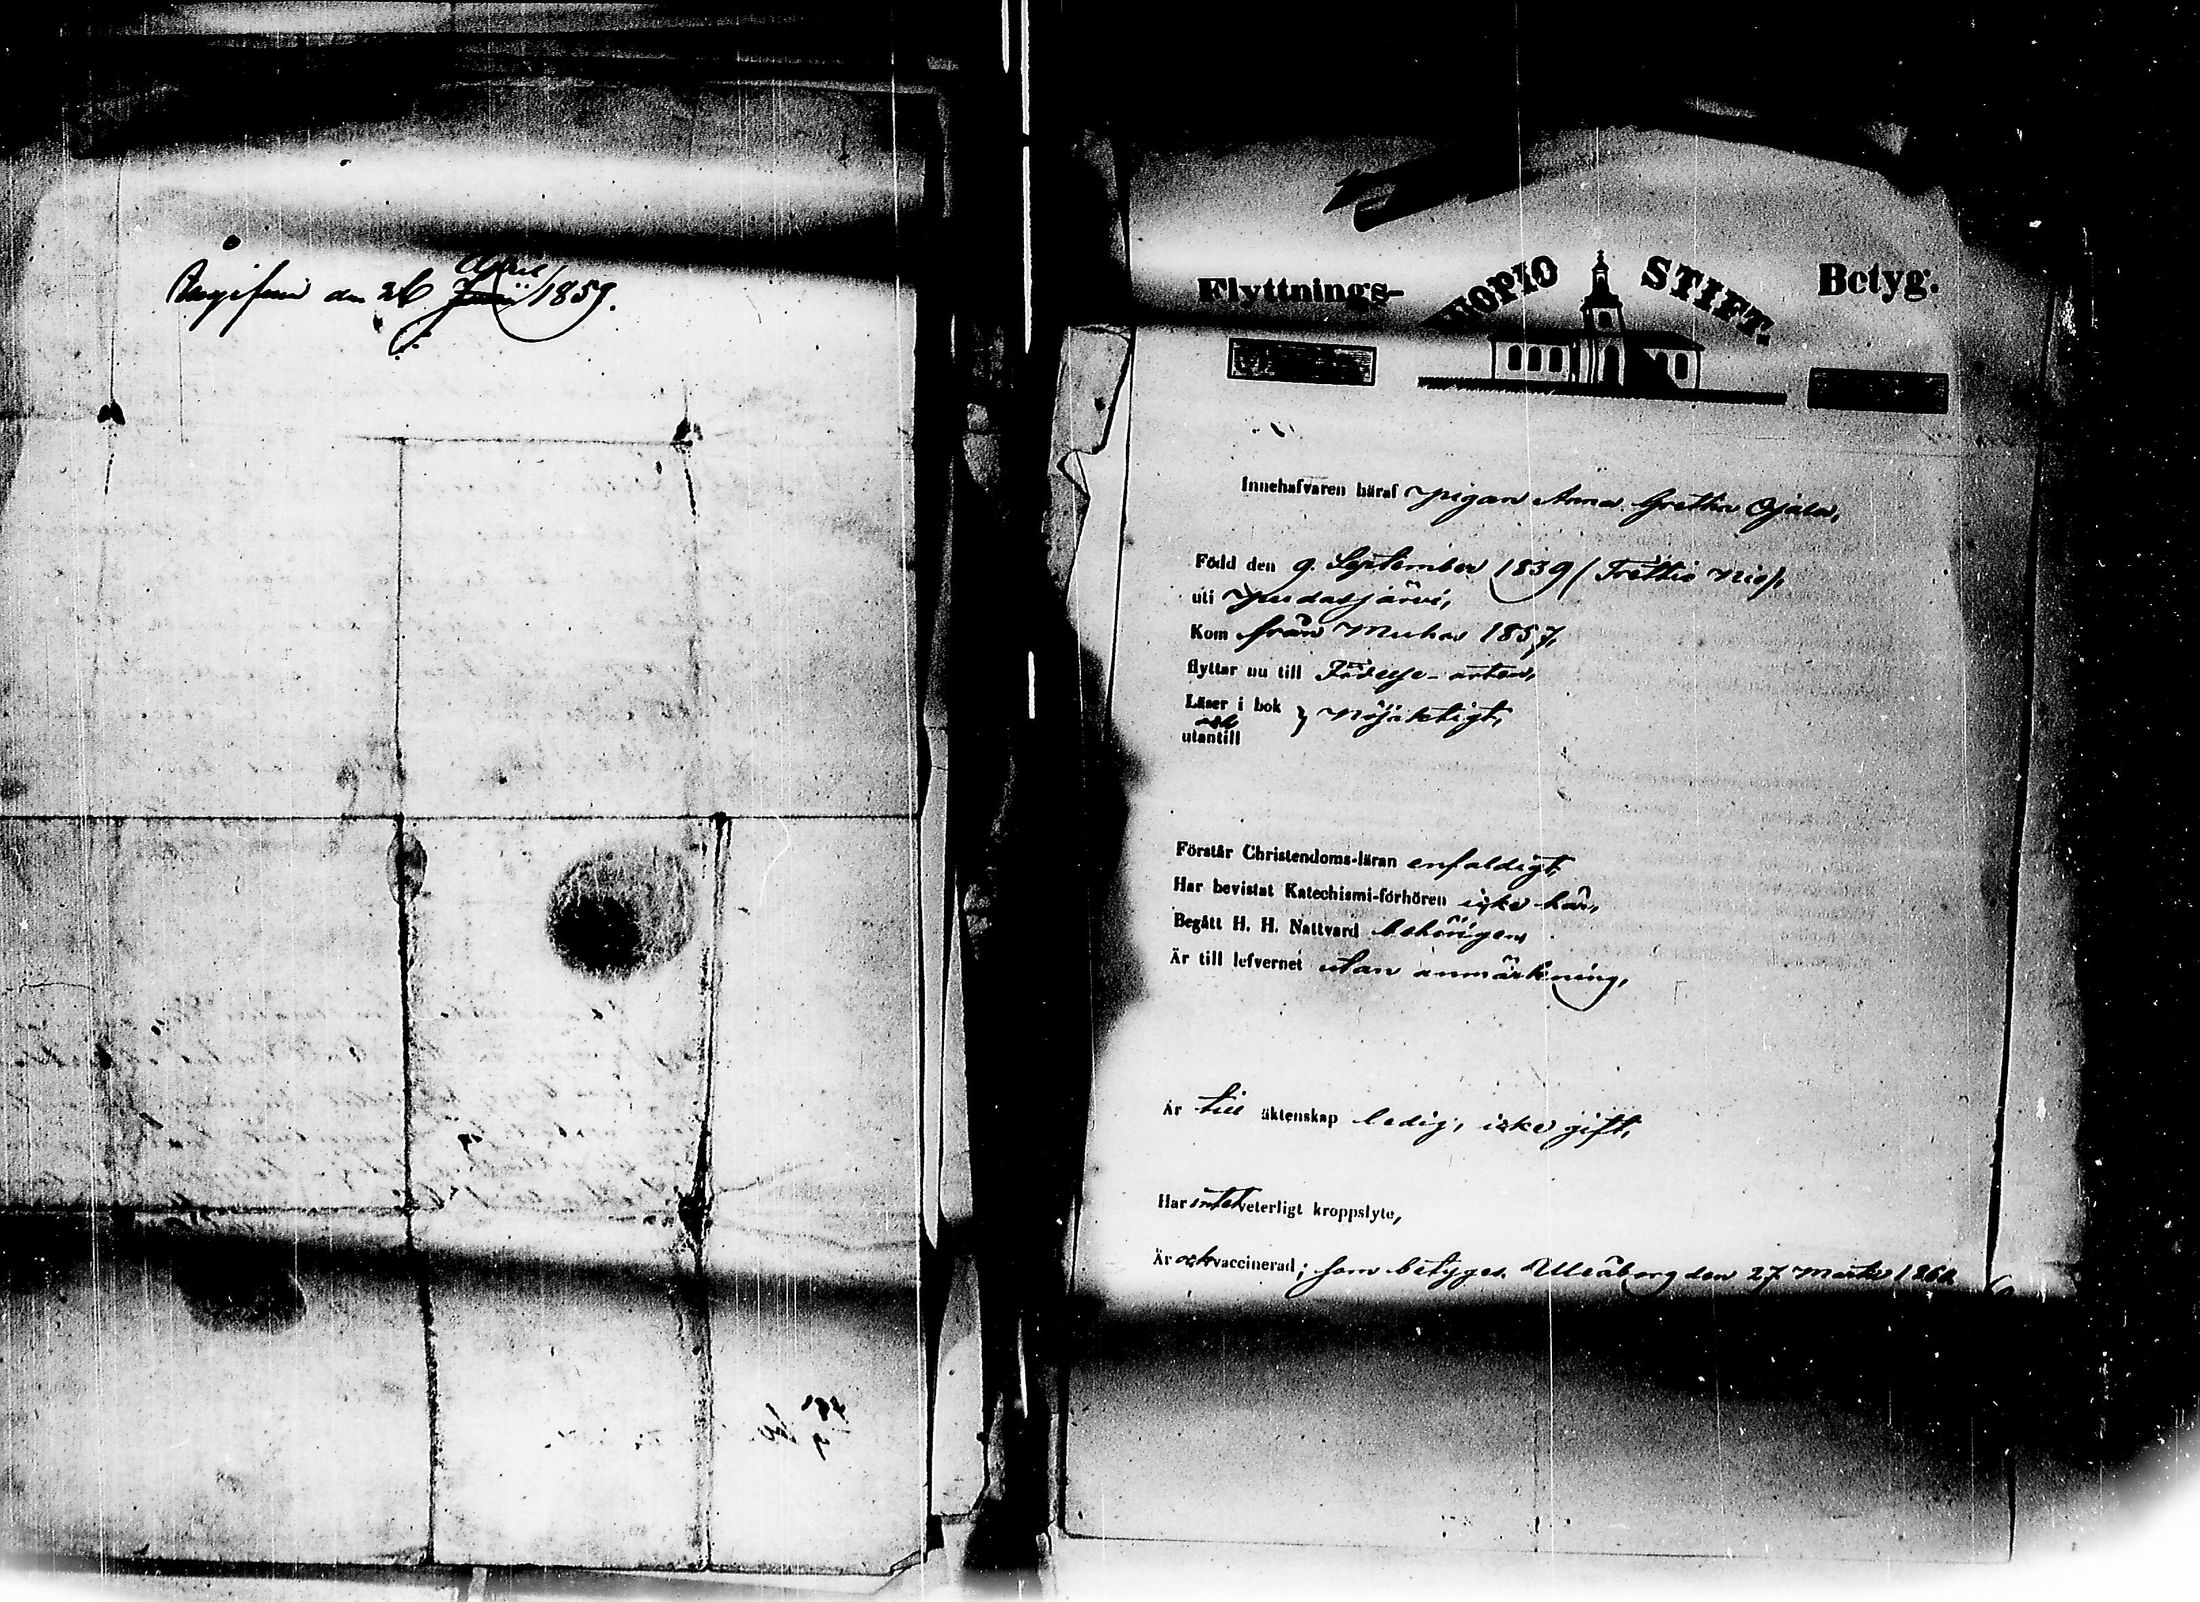 Angifven den 26 April Junii 1859.
Flyttnings- KUOPIO STIFT. Betyg.
Innehafvaren häraf pigan Anna Gretha Ojala,
Född den 9. September 1839 (Trettio nio),
uti Pudasjärvi,
Kom från Muhos 1857,
flyttar nu till Födelse-orten,
Läser i bok } nöjaktigt,
och
utantill
Förstår Christendoms-läran enfaldigt,
Har bevistat Katechismi-förhören icke här,
Begått H. H. Nattvard behörigen,
Är till lefvernet utan anmärkning,
Är till äktenskap ledig, icke gift,
Har intet veterligt kroppslyte,
Är ock vaccinerad; som betyges. Uleåborg den 27 Martii